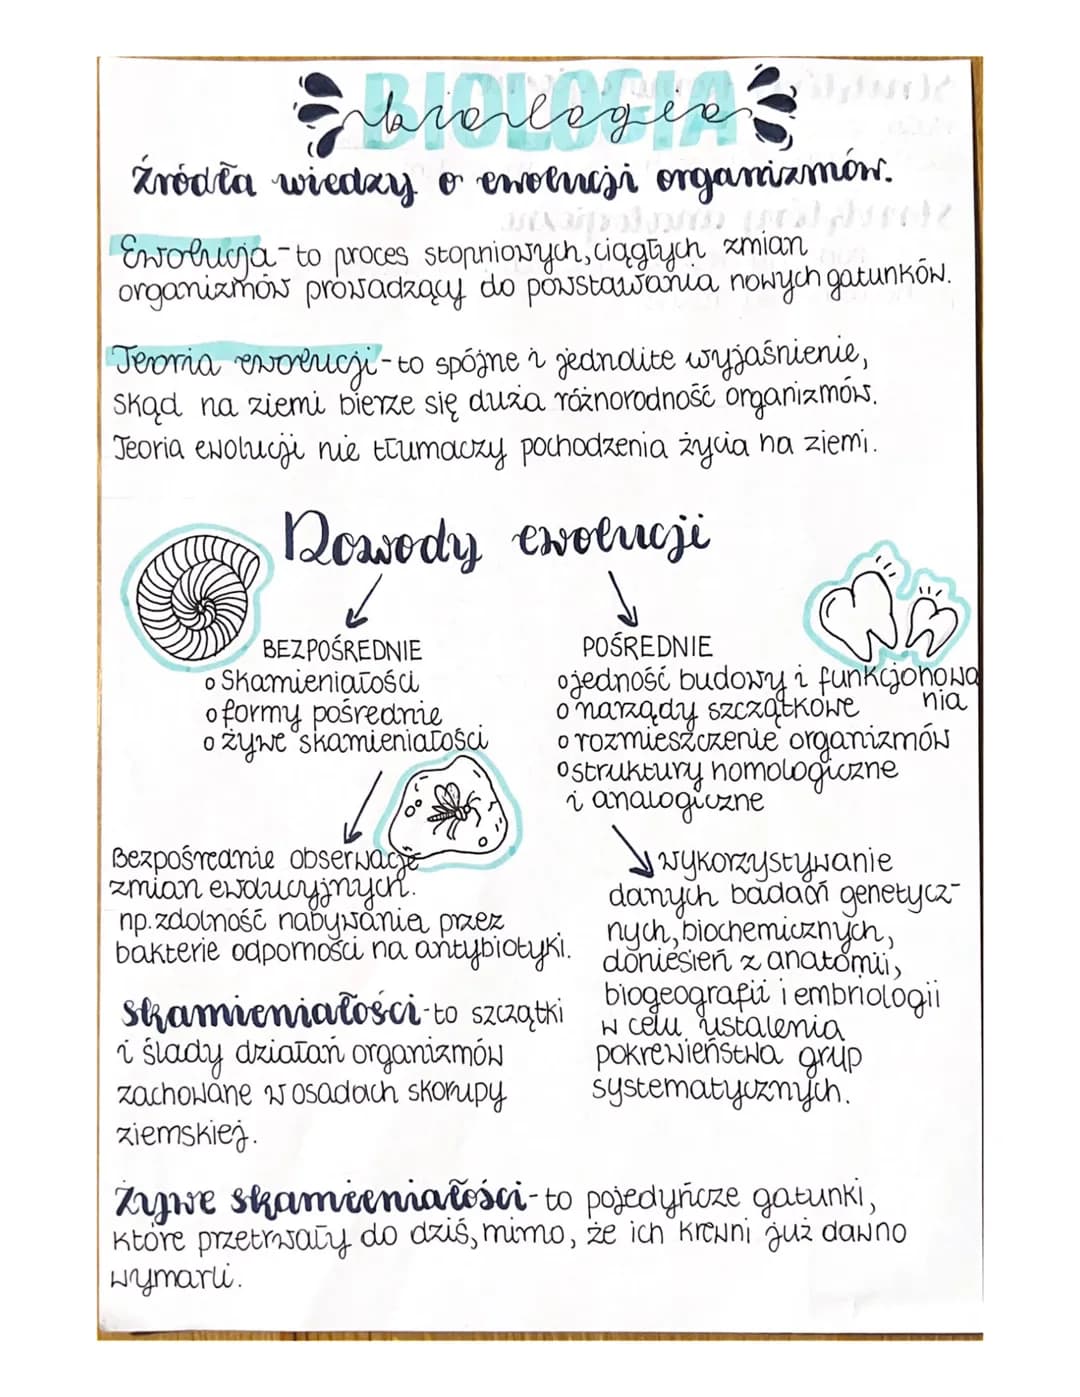 BIOLOGIA
biologia
Źródła wiedzy o ewolucji organizmów.
Ewolucja - to proces stopniowych, ciągłych zmian
organizmów prowadzący do powstawania nowych gatunków.
Teoria ewolucji - to spójne i jednolite wyjaśnienie,
skąd na ziemi bierze się duża różnorodność organizmów.
Teoria ewolucji nie tłumaczy pochodzenia życia na ziemi.
Dowody ewolucji
BEZPOŚREDNIE
o Skamieniałości
o formy pośrednie
o żywe skamieniałości
Bezpośrednie obserwacje
zmian ewolucyjnych.
np. zdolność nabywania przez
bakterie odporności na antybiotyki.
POŚREDNIE
o jedność budowy i funkcjonowa
nia
o narządy szczątkowe
o rozmieszczenie organizmów
o struktury homologiczne
i analogiczne
wykorzystywanie
danych badań genetycz-
nych, biochemicznych,
doniesień z anatomii,
biogeografii i embriologii
w celu ustalenia
pokrewieństwa grup
systematycznych.
Skamieniałości - to szczątki
i ślady działań organizmów
zachowane w osadach skorupy
ziemskiej.
Żywe skamieniałości - to pojedyńcze gatunki,
które przetrwały do dziś, mimo, że ich krewni już dawno
wymarli.